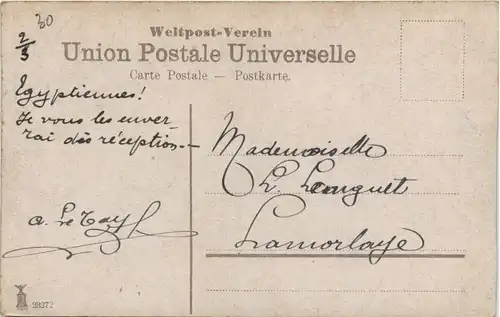 30
2/3
Weltpost-Verein
Union Postale Universelle
Carte Postale — Postkarte.
Egyptiennes!
Je vous les enver-
rai dès réception.-
a. Le Tay
Mademoiselle
L. Lenguet
Lamorlaye
28272